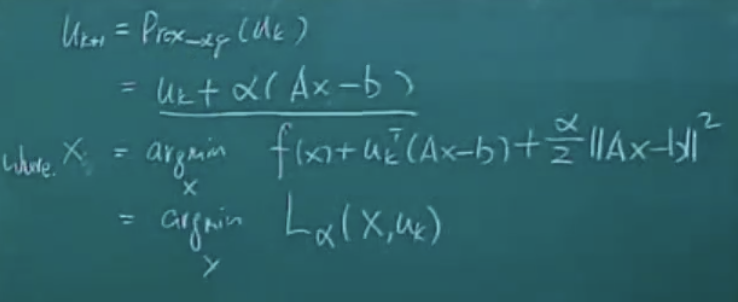 u_{k+1} = Prox_{-αg}(u_k)
= u_k + α(Ax-b)
where. X = argmin_x f(x) + u_k^T(Ax-b) + α/2 ||Ax-b||^2
= argmin_x L_α(X, u_k)